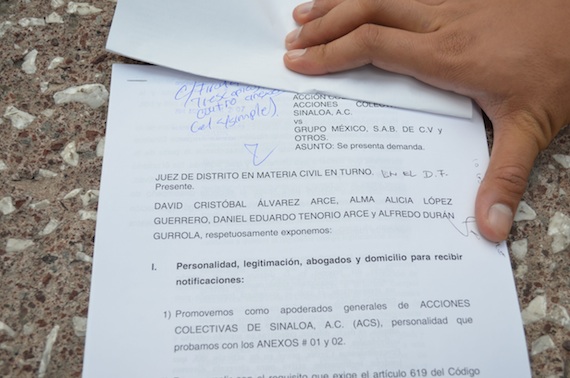 ACCIONES COLECTIVAS
SINALOA, A.C.
vs
GRUPO MÉXICO, S.A.B. DE C.V y
OTROS.
ASUNTO: Se presenta demanda.
JUEZ DE DISTRITO EN MATERIA CIVIL EN TURNO. EN EL D.F.
Presente.
DAVID CRISTÓBAL ÁLVAREZ ARCE, ALMA ALICIA LÓPEZ
GUERRERO, DANIEL EDUARDO TENORIO ARCE y ALFREDO DURÁN
GURROLA, respetuosamente exponemos:
I. Personalidad, legitimación, abogados y domicilio para recibir
notificaciones:
1) Promovemos como apoderados generales de ACCIONES
COLECTIVAS DE SINALOA, A.C. (ACS), personalidad que
probamos con los ANEXOS # 01 y 02.
con el requisito que exige el artículo 619 del Código